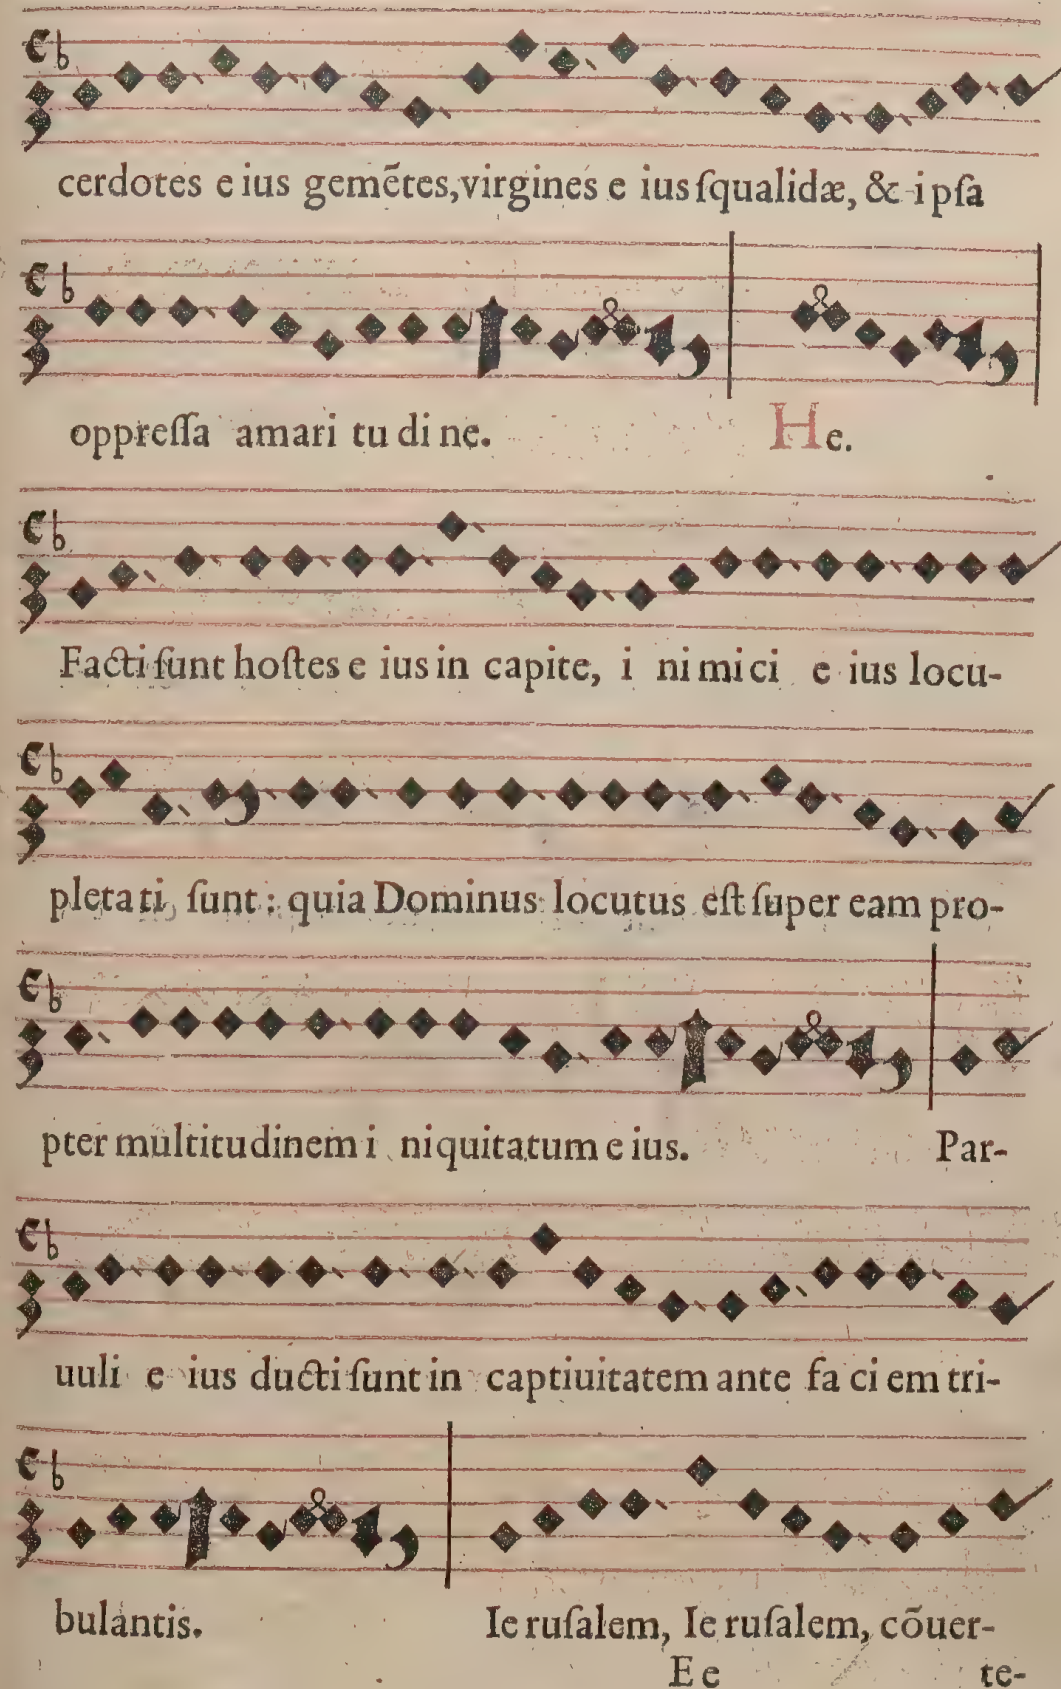 cerdotes eius gemẽtes, virgines eius ſqualidæ, & ipſa
oppreſſa amaritudine. He.
Facti ſunt hoſtes eius in capite, inimici eius locu-
pletati ſunt: quia Dominus locutus eſt ſuper eam pro-
pter multitudinem iniquitatum eius. Par-
uuli eius ducti ſunt in captiuitatem ante faciem tri-
bulantis. Ieruſalem, Ieruſalem, cõuer-
Ee te-